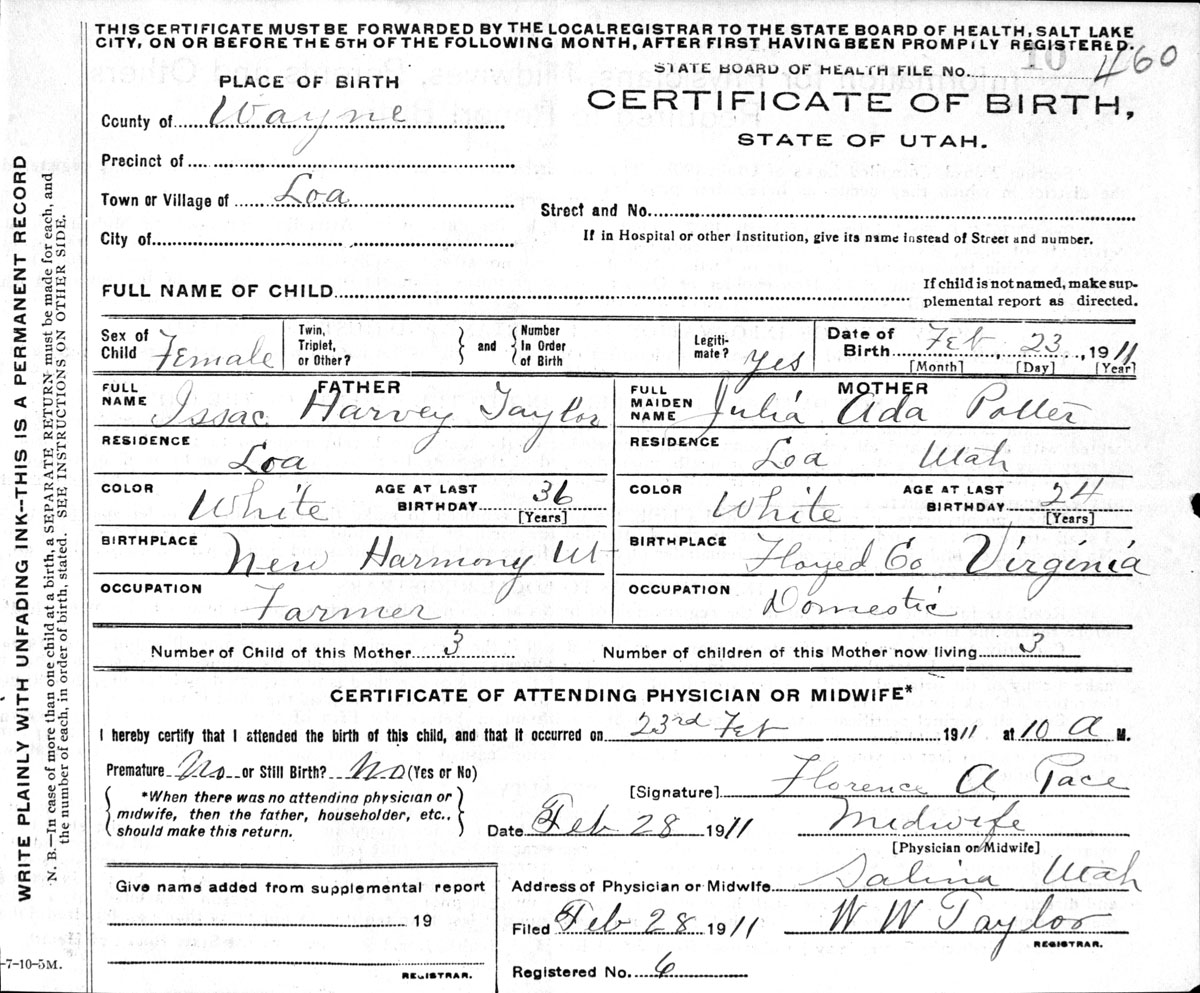 THIS CERTIFICATE MUST BE FORWARDED BY THE LOCAL REGISTRAR TO THE STATE BOARD OF HEALTH, SALT LAKE
CITY, ON OR BEFORE THE 5TH OF THE FOLLOWING MONTH, AFTER FIRST HAVING BEEN PROMPTLY REGISTERED.
STATE BOARD OF HEALTH FILE NO. 10 460
PLACE OF BIRTH
CERTIFICATE OF BIRTH,
STATE OF UTAH.
County of Wayne
Precinct of
Town or Village of Loa
Street and No.
City of
If in Hospital or other Institution, give its name instead of Street and number.
FULL NAME OF CHILD
If child is not named, make sup-
plemental report as directed.
Sex of Child Female
Twin, Triplet, or Other?
and
Number In Order of Birth
Legiti-mate? Yes
Date of Birth Feb, 23, 1911
[Month] [Day] [Year]
FATHER
FULL NAME Issac Harvey Taylor
MOTHER
FULL MAIDEN NAME Julia Ada Potter
RESIDENCE Loa
RESIDENCE Loa Utah
COLOR White AGE AT LAST BIRTHDAY 36 [Years]
COLOR White AGE AT LAST BIRTHDAY 24 [Years]
BIRTHPLACE New Harmony Ut
BIRTHPLACE Floyed Co Virginia
OCCUPATION Farmer
OCCUPATION Domestic
Number of Child of this Mother 3 Number of children of this Mother now living 3
CERTIFICATE OF ATTENDING PHYSICIAN OR MIDWIFE*
I hereby certify that I attended the birth of this child, and that it occurred on 23rd Feb 1911 at 10 A M.
Premature No or Still Birth? No (Yes or No)
*When there was no attending physician or
midwife, then the father, householder, etc.,
should make this return.
[Signature] Florence A. Pace
Date Feb 28 1911 Midwife
[Physician or Midwife]
Give name added from supplemental report
19
REGISTRAR.
Address of Physician or Midwife Salina Utah
Filed Feb 28 1911 W W Taylor
REGISTRAR.
Registered No. 6
-7-10-5M.
WRITE PLAINLY WITH UNFADING INK--THIS IS A PERMANENT RECORD
N. B.—In case of more than one child at a birth, a SEPARATE RETURN must be made for each, and
the number of each, in order of birth, stated. SEE INSTRUCTIONS ON OTHER SIDE.